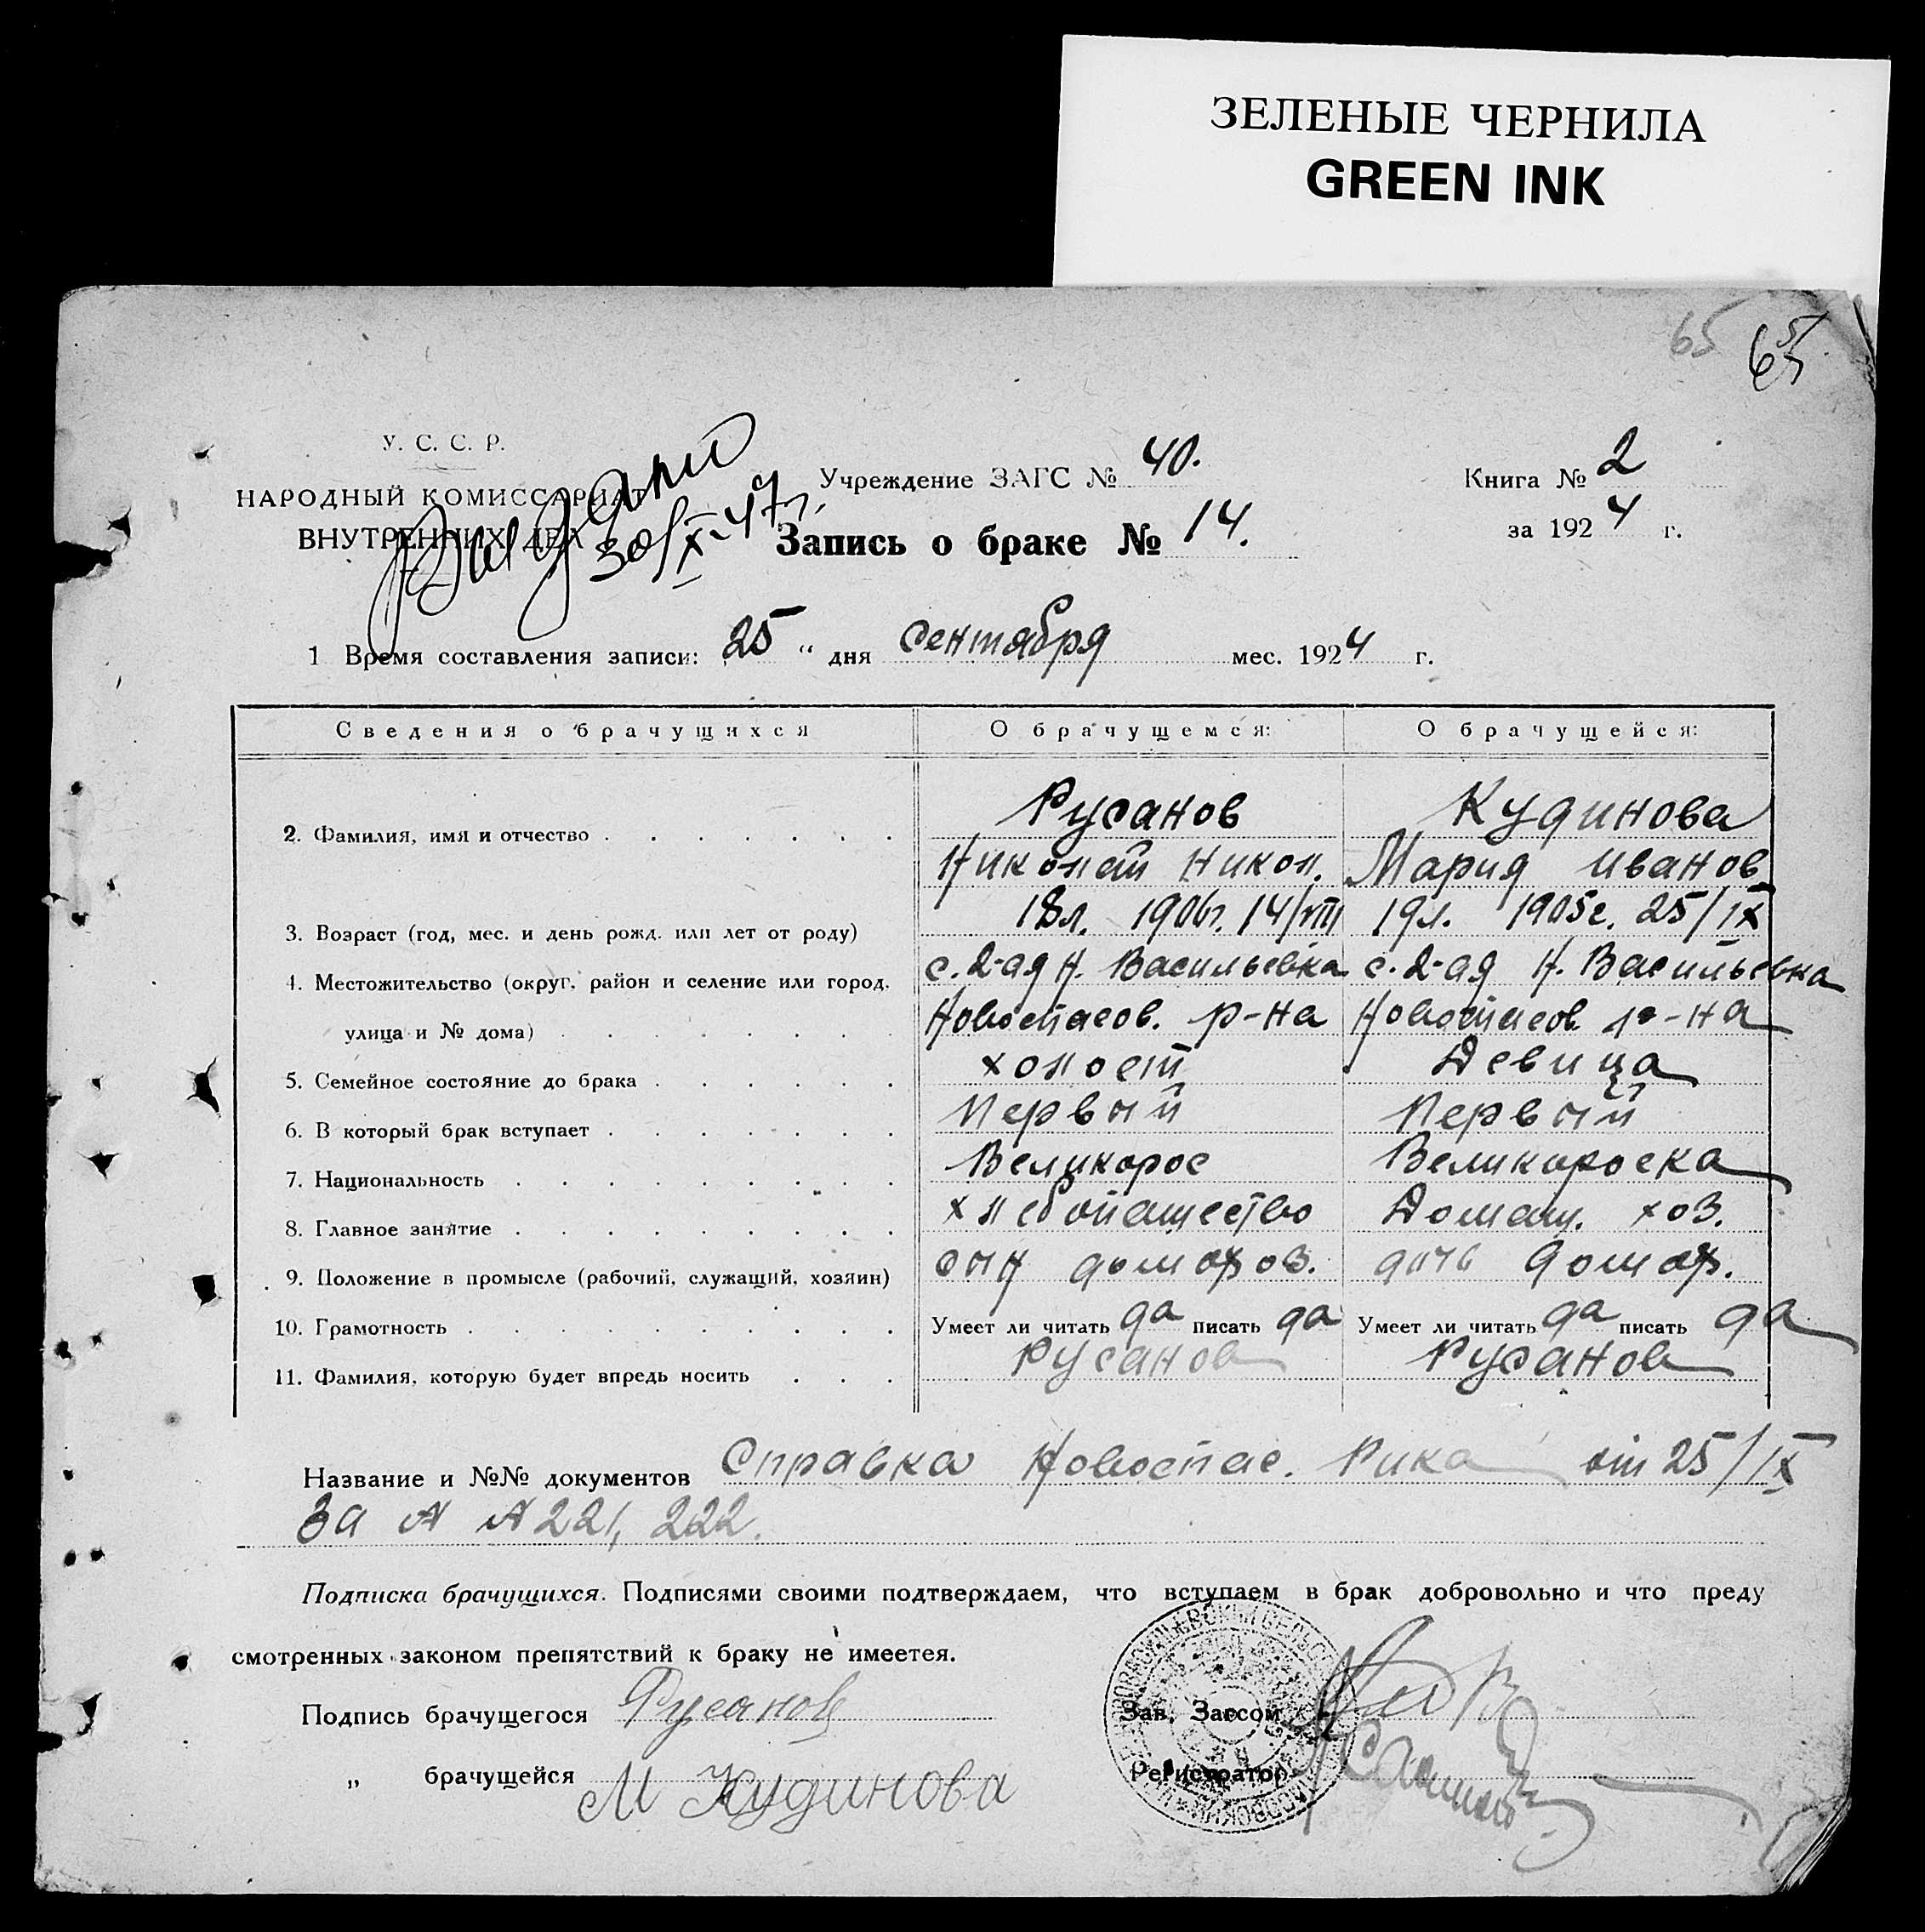 ЗЕЛЕНЫЕ ЧЕРНИЛА
GREEN INK
65 65
У. С. С. Р.
НАРОДНЫЙ КОМИССАРИАТ
ВНУТРЕННИХ ДЕЛ
30/X-47г.
Учреждение ЗАГС № 40.
Книга № 2
Запись о браке № 14.
за 1924 г.
1 Время составления записи: 25 " дня сентября мес. 1924 г.
Сведения о брачущихся О брачущемся: О брачущейся:
2. Фамилия, имя и отчество Русанов Кудинова
Николай Никол. Мария Иванов
3. Возраст (год, мес. и день рожд. или лет от роду) 18л. 1906г. 14/VIII 19л. 1905г. 25/IX
4. Местожительство (округ, район и селение или город, с. 2-ая Н. Васильевка с. 2-ая Н. Васильевка
улица и № дома) Новоспасов. р-на Новоспасов. р-на
5. Семейное состояние до брака холост Девица
6. В который брак вступает Первый Первый
7. Национальность Великорос Великороска
8. Главное занятие хлебопашество Домаш. хоз.
9. Положение в промысле (рабочий, служащий, хозяин) сын домохоз. дочь домох.
10. Грамотность Умеет ли читать да писать да Умеет ли читать да писать да
11. Фамилия, которую будет впредь носить Русанов Русанов
Название и №№ документов Справка Новоспас. Рика от 25/IX
За № № 221, 222.
Подписка брачущихся. Подписями своими подтверждаем, что вступаем в брак добровольно и что преду
смотренных законом препятствий к браку не имеетея.
Подпись брачущегося Русанов
Зав. Загсом
" брачущейся М Кудинова
Регистратор